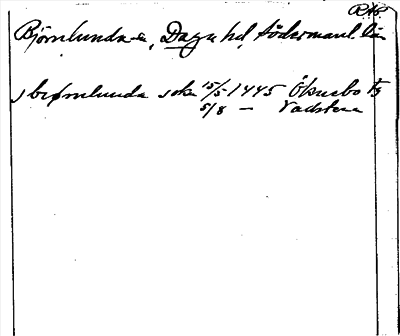 Björnlunda sn, Daga hd, Södermanl. län
i biørnlunda sokn 15/5 1445 Öknebo tg
5/8 — Vadstena